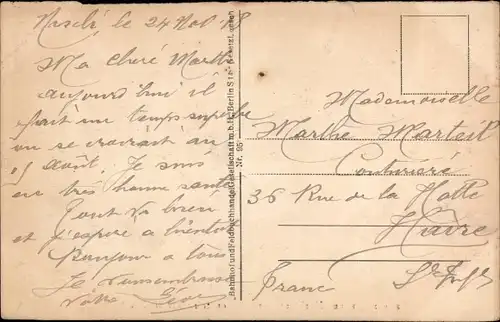 le 24 Nov 18
Ma chère Marthe
aujourd'hui il
fait un temps superbe
on se croirait au
15 août. Je suis
en très bonne santé
Tout va bien
et j'espère a bientôt
Bonjour a tous
Je
Votre
Bahnhof und Feldbuchhandel Gesellschaft m.b.H. Berlin S
Nr. 95
Mademoiselle
Marthe Marteil
Couturière
36 Rue de la Hotte
Havre
France